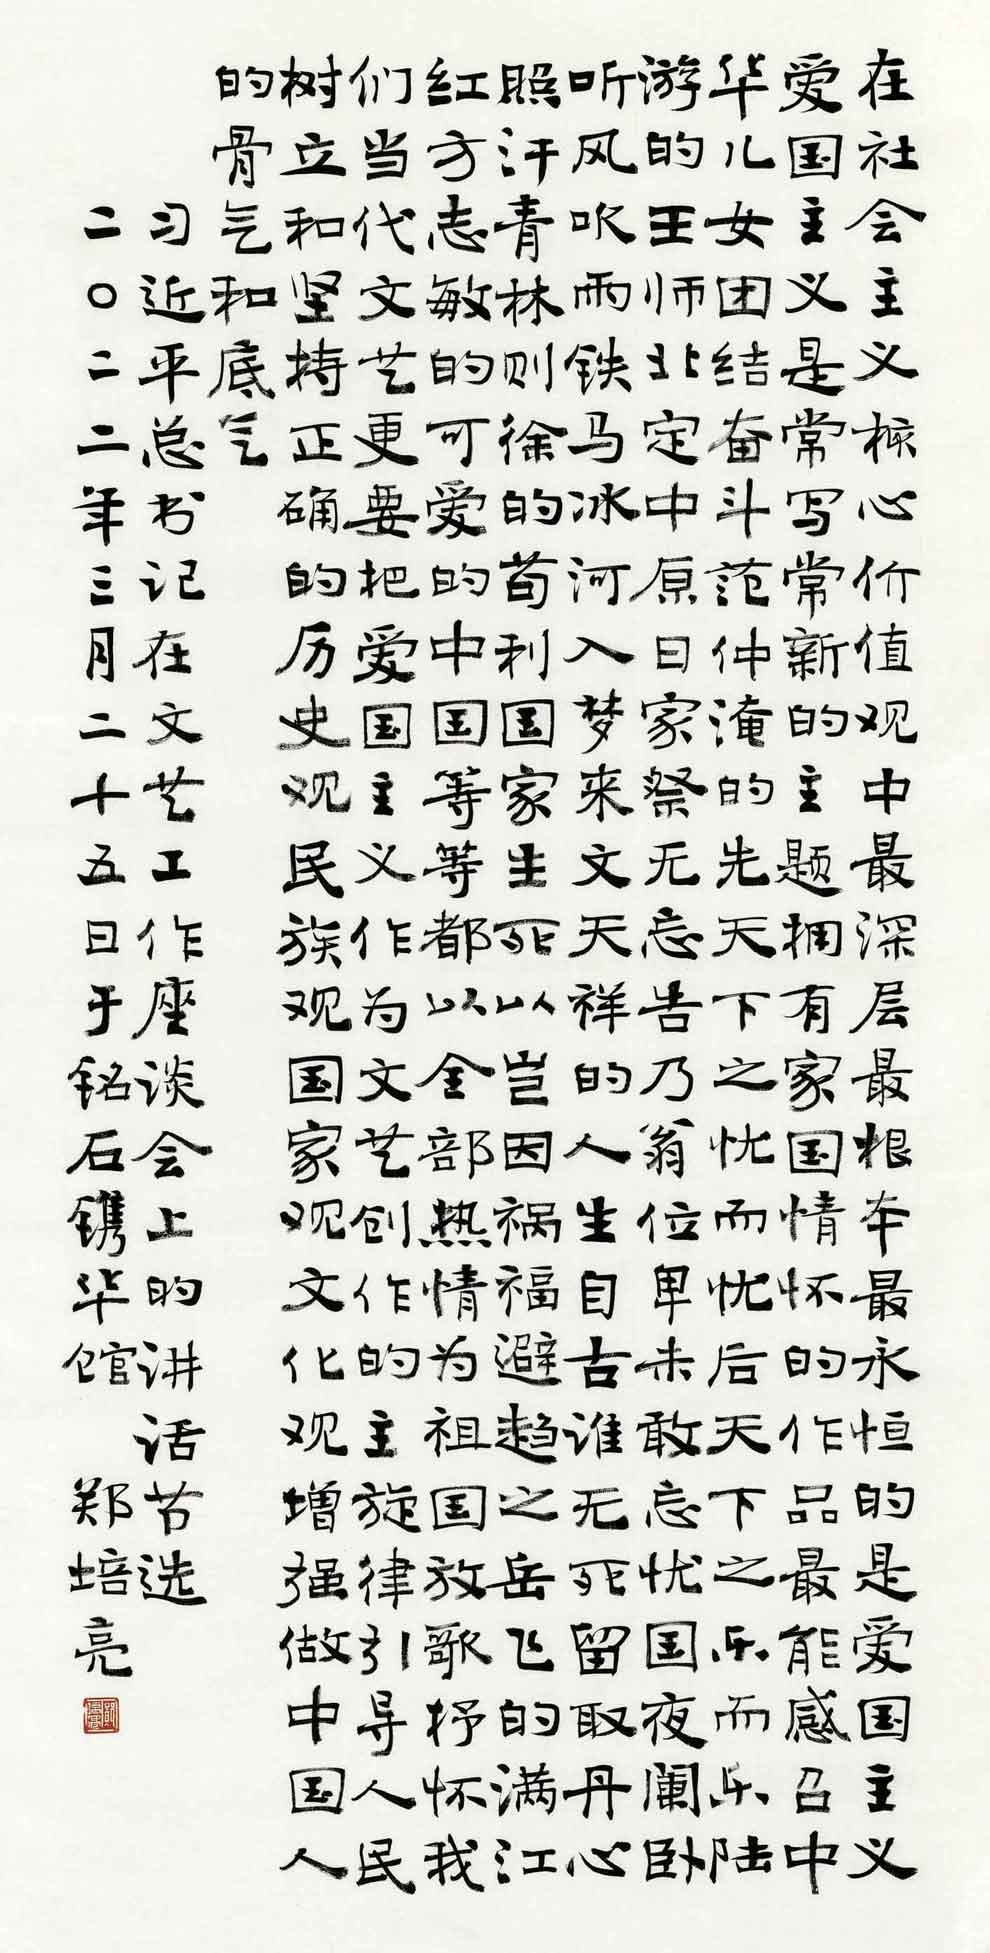 在社会主义核心价值观中最深层最根本最永恒的是爱国主义
爱国主义是常写常新的主题拥有家国情怀的作品最能感召中
华儿女团结奋斗范仲淹的先天下之忧而忧后天下之乐而乐陆
游的王师北定中原日家祭无忘告乃翁位卑未敢忘忧国夜阑卧
听风吹雨铁马冰河入梦来文天祥的人生自古谁无死留取丹心
照汗青林则徐的苟利国家生死以岂因祸福避趋之岳飞的满江
红方志敏的可爱的中国等等都以全部热情为祖国放歌抒怀我
们当代文艺更要把爱国主义作为文艺创作的主旋律引导人民
树立和坚持正确的历史观民族观国家观文化观增强做中国人
的骨气和底气
习近平总书记在文艺工作座谈会上的讲话节选
二〇二二年三月二十五日于铭石镌华馆 郑培亮